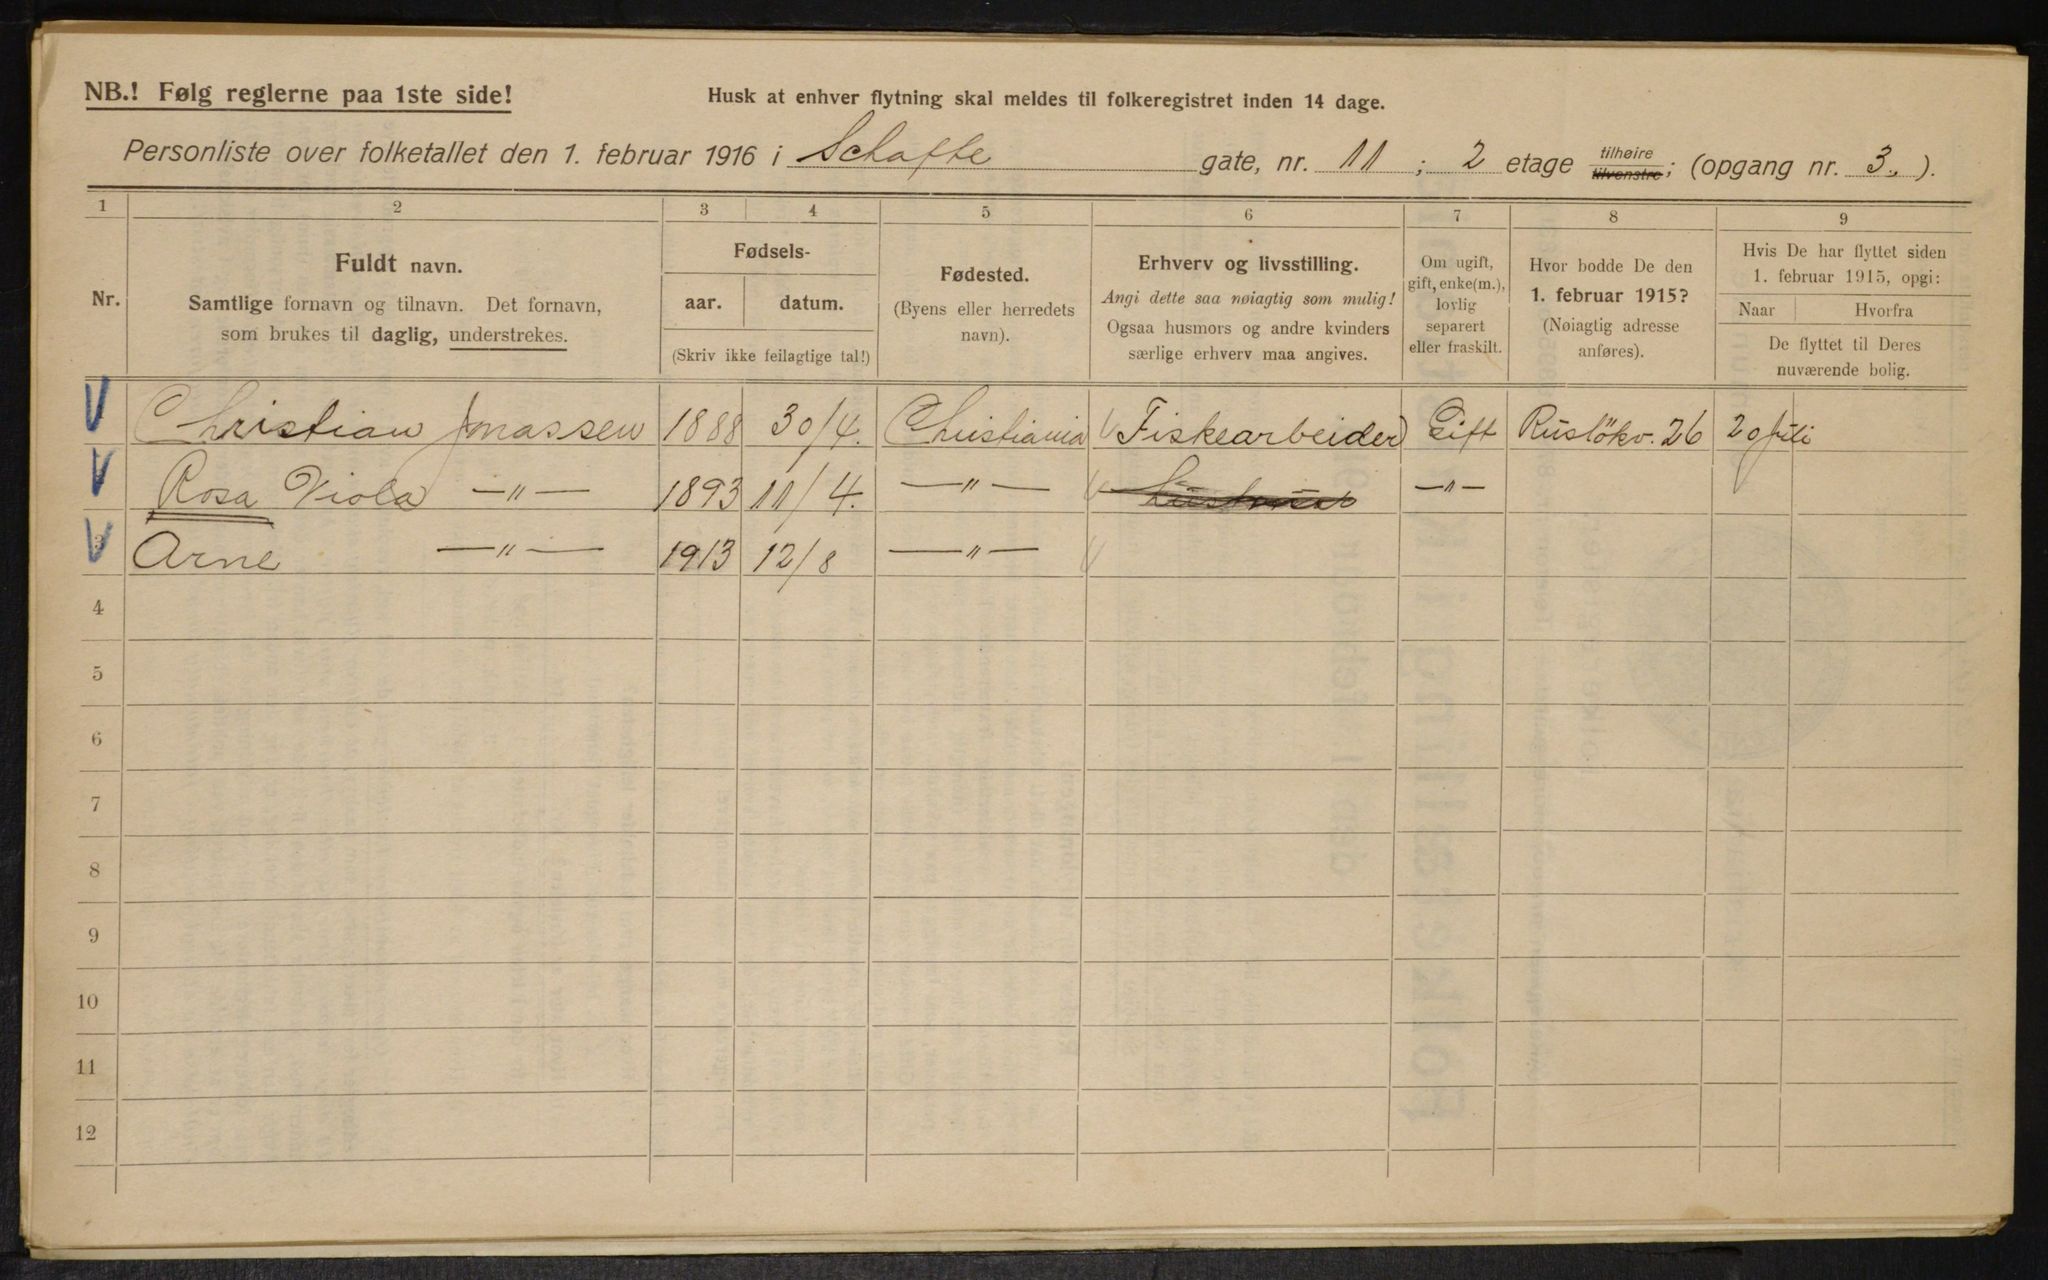 NB.! Følg reglerne paa 1ste side!
Husk at enhver flytning skal meldes til folkeregistret inden 14 dage.
Personliste over folketallet den 1. februar 1916 i Schafte gate, nr. 11 ; 2 etage tilhøire tilvenstre; (opgang nr. 3. ).
1 2 3 4 5 6 7 8 9
Nr.
Fuldt navn.
Samtlige fornavn og tilnavn. Det fornavn,
som brukes til daglig, understrekes.
Fødsels-
aar. datum.
(Skriv ikke feilagtige tal!)
Fødested.
(Byens eller herredets
navn).
Erhverv og livsstilling.
Angi dette saa nøiagtig som mulig!
Ogsaa husmors og andre kvinders
særlige erhverv maa angives.
Om ugift,
gift, enke(m.),
lovlig
separert
eller fraskilt.
Hvor bodde De den
1. februar 1915?
(Nøiagtig adresse
anføres).
Hvis De har flyttet siden
1. februar 1915, opgi:
Naar Hvorfra
De flyttet til Deres
nuværende bolig.
Christian Jonassen 1888 30/4. Christiania Fiskearbeider Gift Ruslökv. 26 20 juli
Rosa Viola —"— 1893 11/4. —"— —"—
3 Arne —"— 1913 12/8 —"—
4
5
6
7
8
9
10
11
12